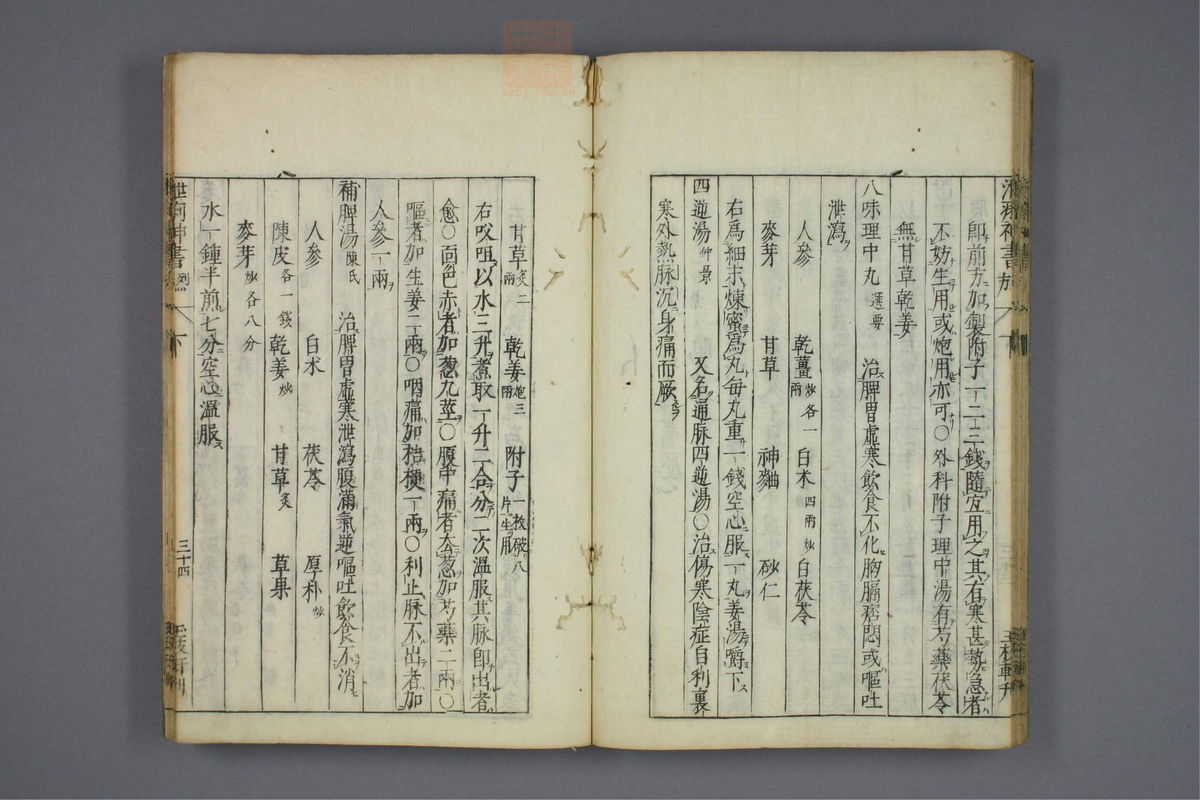 即前方加製附子一二三錢隨宜用之其有寒甚勢急者
不妨生用或炮用亦可○外科附子理中湯有芍藥茯苓
無甘草乾姜
八味理中丸 選要 治脾胃虛寒飲食不化胸膈痞悶或嘔吐
泄瀉
人參 乾薑炒各一兩 白术四兩炒 白茯苓
麥芽 甘草 神麯 砂仁
右爲細末煉蜜爲丸每丸重一錢空心服一丸姜湯嚼下
四逆湯 仲景 又名通脉四逆湯○治傷寒陰症自利裏
寒外熱脉沉身痛而厥
甘草炙二兩 乾姜炮三兩 附子一枚破八片生用
右㕮咀以水三升煮取一升二合分二次溫服其脉即出者
愈○面色赤者加葱九莖○腹中痛者去葱加芍藥二兩○
嘔者加生姜二兩○咽痛加桔梗一兩○利止脉不出者加
人參一兩
補脾湯 陳氏 治脾胃虛寒泄瀉腹滿氣逆嘔吐飲食不消
人參 白术 茯苓 厚朴炒
陳皮各一錢 乾姜炒 甘草炙 草果
麥芽炒各八分
水一鍾半煎七分空心溫服
三十四
zycj.com.cn